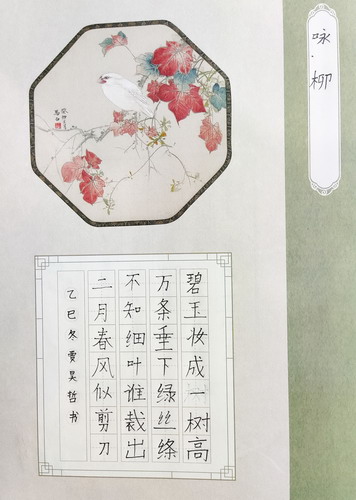 咏·柳
碧玉妆成一树高
万条垂下绿丝绦
不知细叶谁裁出
二月春风似剪刀
乙巳冬贾昊哲书